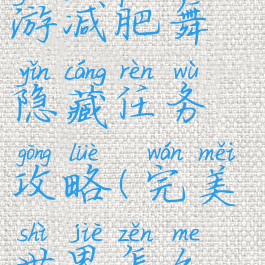 游减肥舞
yǐn cáng rèn wù
隐藏任务
gōng lüè wán měi
攻略(完美
shì jiè zěn me
世界怎么